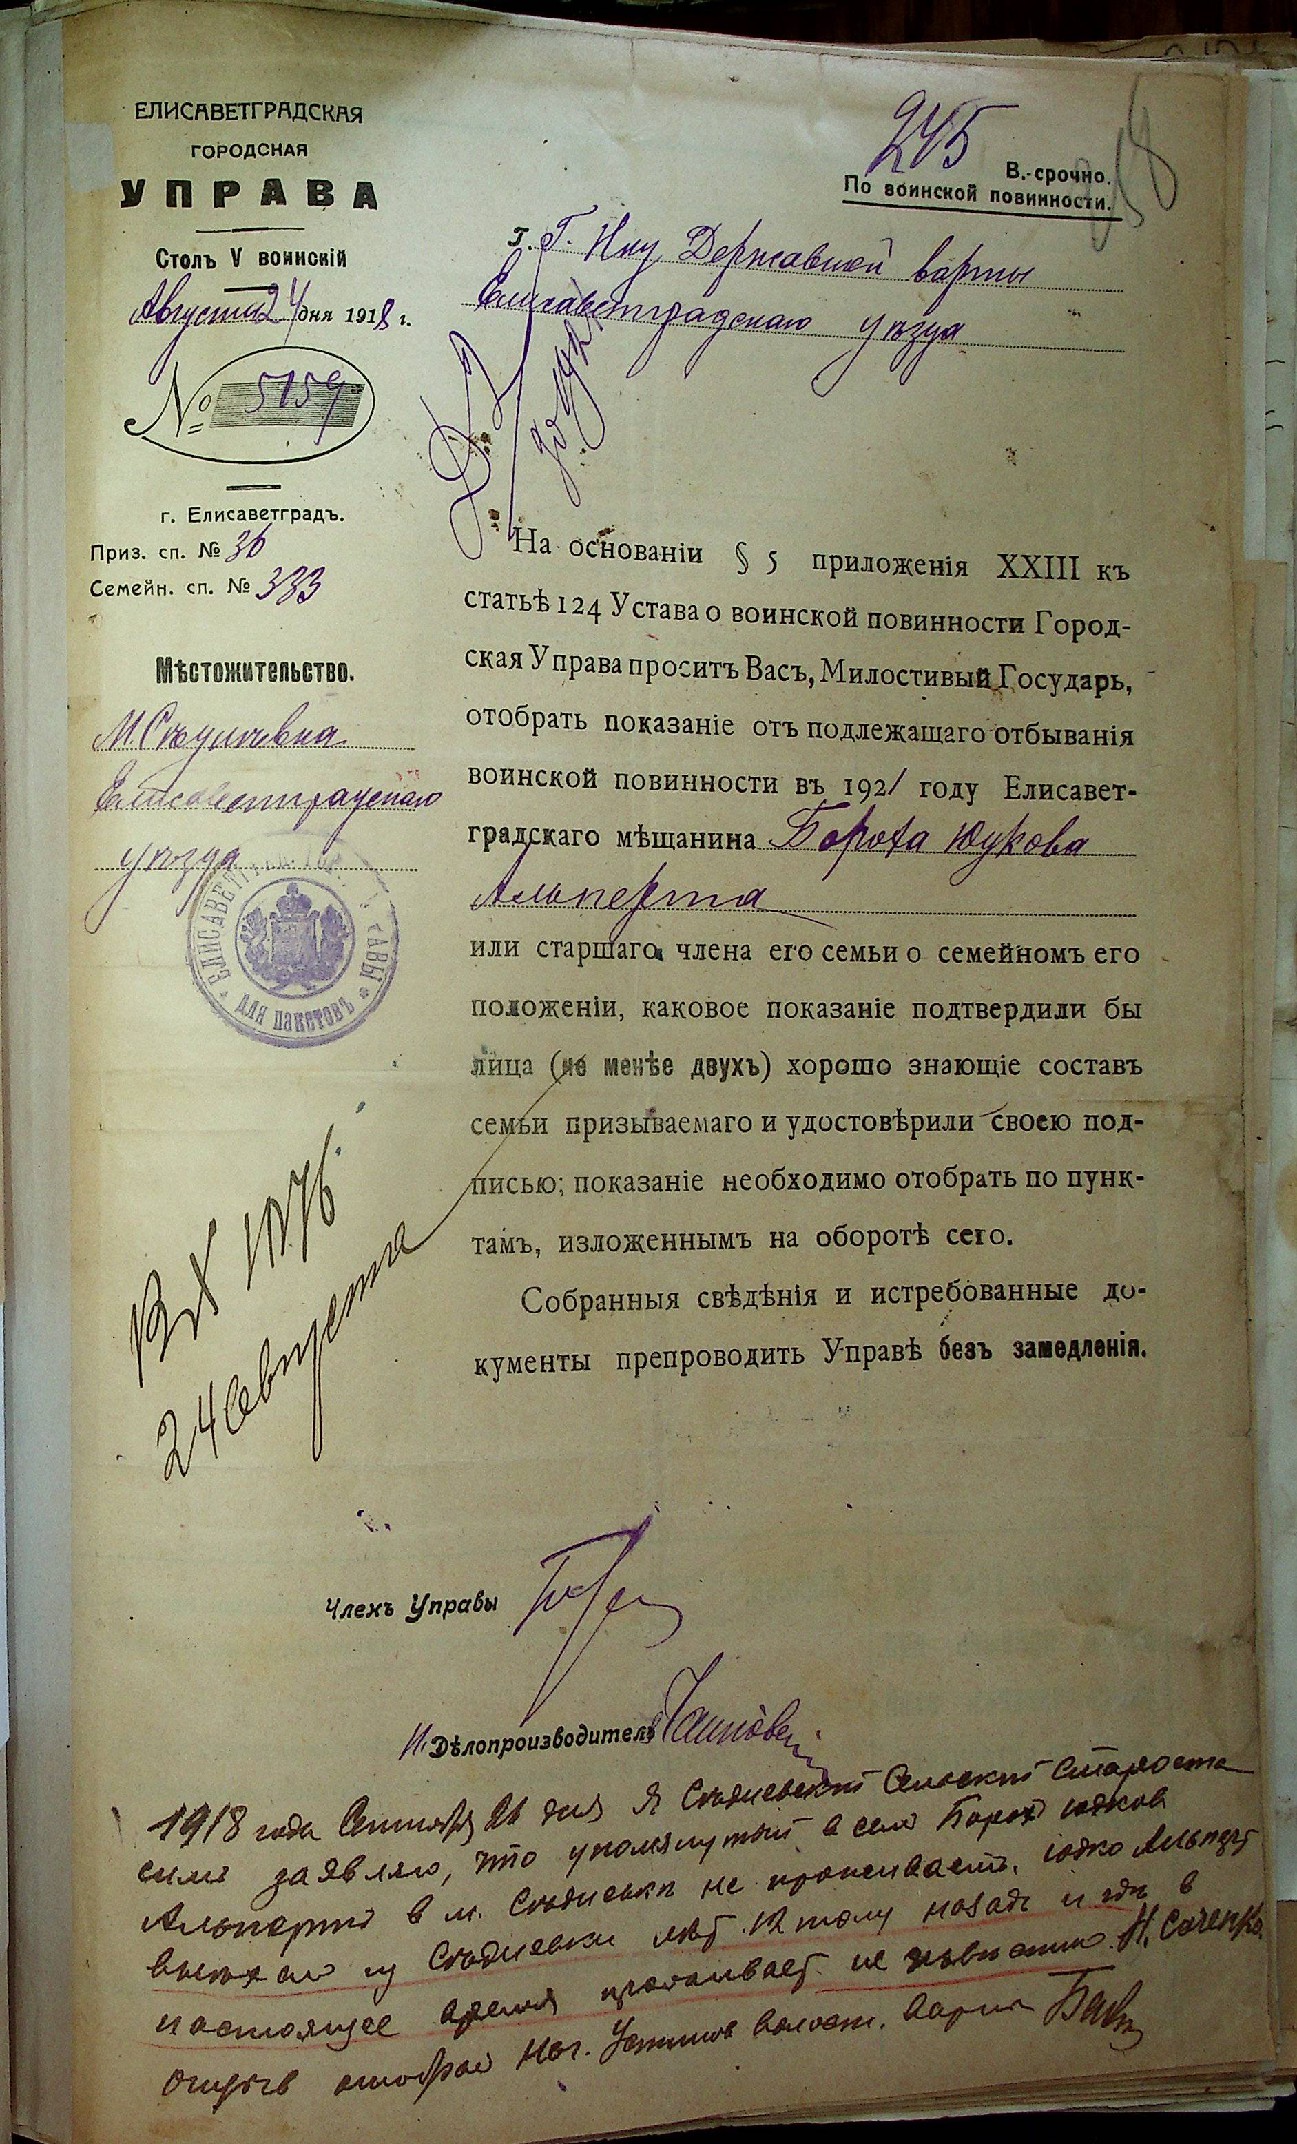 ЕЛИСАВЕТГРАДСКАЯ
ГОРОДСКАЯ
УПРАВА
Столъ V воинскій
Августа 24 дня 1918 г.
№ 5159
г. Елисаветградъ.
Приз. сп. № 36
Семейн. сп. № 333
Мѣстожительство.
Елисаветградскаго
уѣзда
ДЛЯ ПАКЕТОВЪ
245
В.-срочно.
По воинской повинности.
Г. Г. Нку Державной варты
Елисаветградскаго уѣзда
На основаніи § 5 приложенія XXIII къ
статьѣ 124 Устава о воинской повинности Город-
ская Управа проситъ Васъ, Милостивый Государь,
отобрать показаніе отъ подлежащаго отбыванія
воинской повинности въ 1921 году Елисавет-
градскаго мѣщанина Бороха Юдкова
Альперта
или старшаго члена его семьи о семейномъ его
положеніи, каковое показаніе подтвердили бы
лица (не менѣе двухъ) хорошо знающіе составъ
семьи призываемаго и удостовѣрили своею под-
писью; показаніе необходимо отобрать по пунк-
тамъ, изложеннымъ на оборотѣ сего.
Собранныя свѣдѣнія и истребованные до-
кументы препроводить Управѣ безъ замедленія.
Вх 1076
24 августа
Членъ Управы
И. Дѣлопроизводитель
1918 года Сентября 26 дня я Сельский Староста
симъ заявляю, что упомянутый в семъ Борох Юдков
Альпертъ в м. не проживаетъ. Юдко Альперт
выехал из лет 12 тому назадъ и гдѣ в
настоящее время проживает не известно. Н.
отобрал Нач. волост. варты